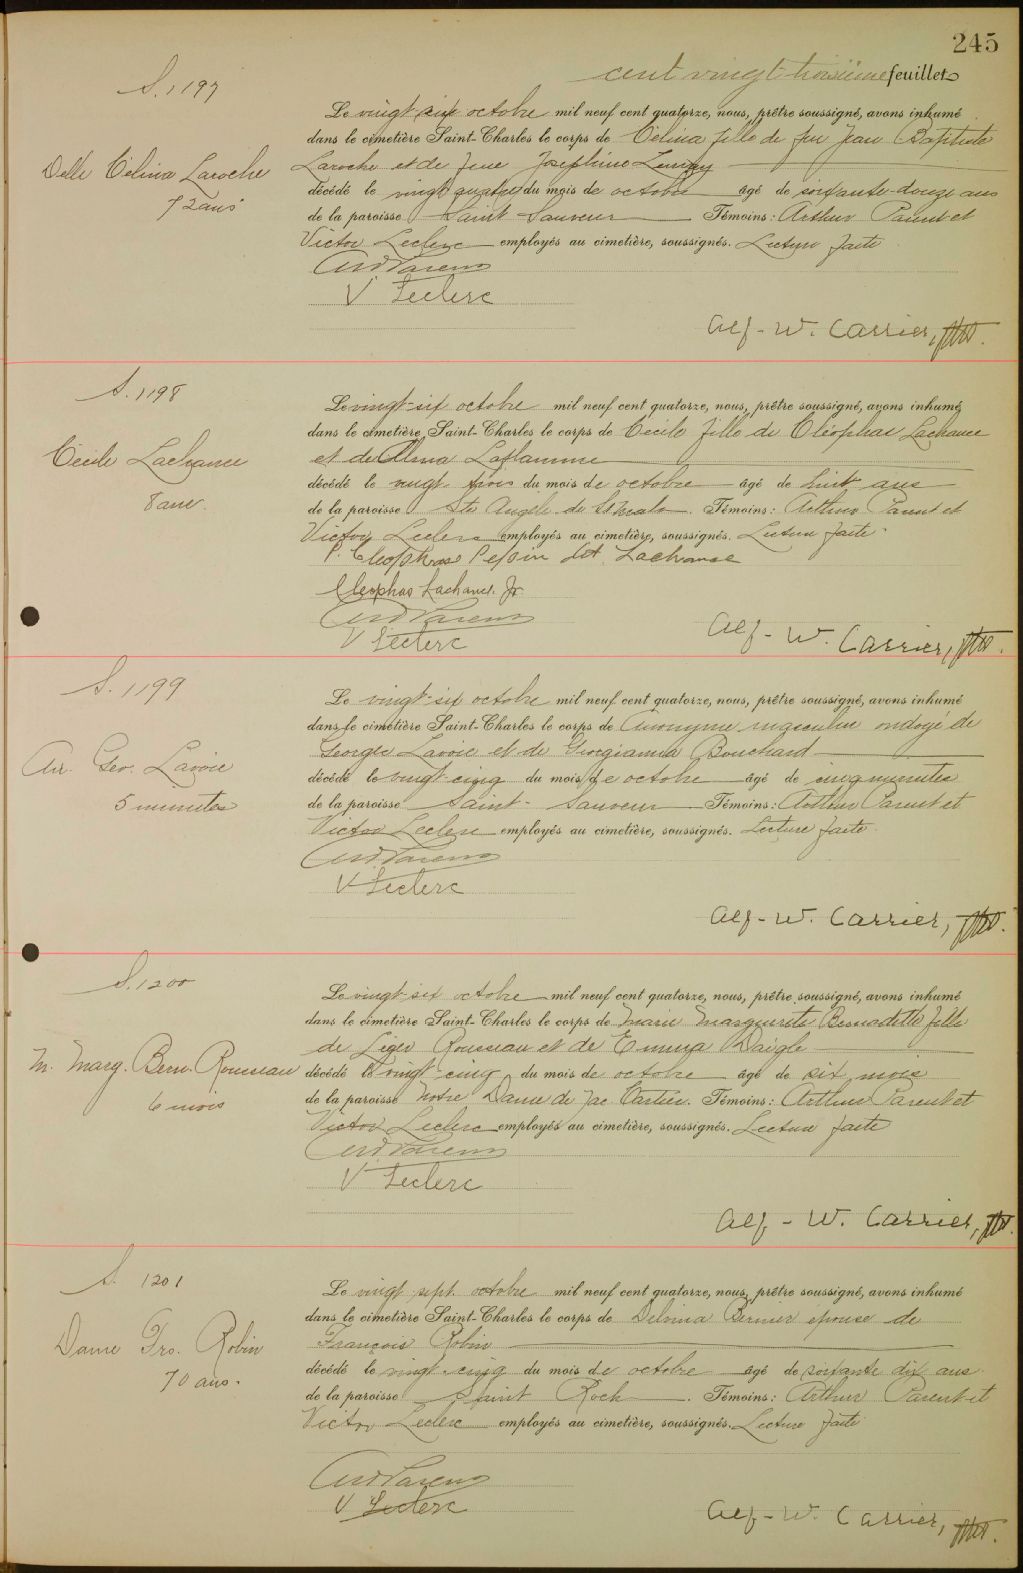 245
cent vingt troisième feuillet
S. 1197
Delle Célina Laroche
72 ans
Le vingt six octobre mil neuf cent quatorze, nous, prêtre soussigné, avons inhumé
dans le cimetière Saint-Charles le corps de Célina fille de feu Jean Baptiste
Laroche et de feue Josephine
décédé le vingt quatre du mois de octobre âgé de soixante-douze ans
de la paroisse Saint Sauveur Témoins: Arthur Parent et
Victor Leclerc employés au cimetière, soussignés. Lecture faite
Art Parent
V Leclerc
Alf-W. Carrier, ptre.
S. 1198
Cécile Lachance
8 ans.
Le vingt-six octobre mil neuf cent quatorze, nous, prêtre soussigné, avons inhumé
dans le cimetière Saint-Charles le corps de Cécile fille de Cléophas Lachance
et de Alma Laflamme
décédé le vingt trois du mois de octobre âgé de huit ans
de la paroisse Ste Angèle de St Malo. Témoins: Arthur Parent et
Victor Leclerc employés au cimetière, soussignés. Lecture faite
P. Cleophas Pepin dit Lachance
Cleophas Lachance Jr
Art Parent
V Leclerc
Alf-W. Carrier, ptre.
S. 1199
An. Geo. Lavoie
5 minutes
Le vingt-six octobre mil neuf cent quatorze, nous, prêtre soussigné, avons inhumé
dans le cimetière Saint-Charles le corps de Anonyme masculin ondoyé de
Georges Lavoie et de Georgianna Bouchard
décédé le vingt cinq du mois de octobre âgé de cinq minutes
de la paroisse Saint-Sauveur Témoins: Arthur Parent et
Victor Leclerc employés au cimetière, soussignés. Lecture faite.
Art Parent
V Leclerc
Alf-W. Carrier, ptre.
S. 1200
M. Marg. Bern. Rousseau
6 mois
Le vingt-six octobre mil neuf cent quatorze, nous, prêtre soussigné, avons inhumé
dans le cimetière Saint-Charles le corps de Marie Marguerite Bernadette fille
de Léger Rousseau et de Emma Daigle
décédé le vingt-cinq du mois de octobre âgé de six mois
de la paroisse Notre Dame de Jac. Cartier. Témoins: Arthur Parent et
Victor Leclerc employés au cimetière, soussignés. Lecture faite
Art Parent
V Leclerc
Alf-W. Carrier, ptre.
S. 1201
Dame Frs. Robin
70 ans.
Le vingt sept octobre mil neuf cent quatorze, nous, prêtre soussigné, avons inhumé
dans le cimetière Saint-Charles le corps de Delvina Bernier épouse de
François Robin
décédé le vingt-cinq du mois de octobre âgé de soixante dix ans
de la paroisse Saint Roch. Témoins: Arthur Parent et
Victor Leclerc employés au cimetière, soussignés. Lecture faite
Art Parent
V Leclerc
Alf-W. Carrier, ptre.